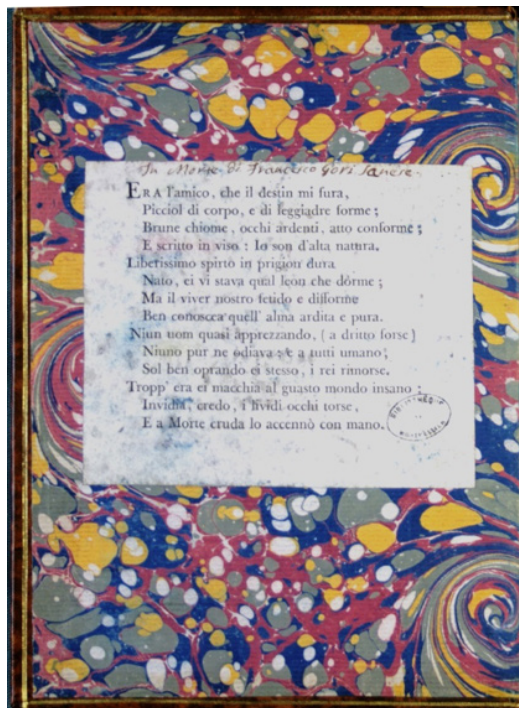 In Morte di Francesco Gori Sanese.
ERA l'amico, che il destin mi fura,
Picciol di corpo, e di leggiadre forme;
Brune chiome, occhi ardenti, atto conforme;
E scritto in viso: Io son d'alta natura.
Liberissimo spirto in prigion dura
Nato, ei vi stava qual leon che dorme;
Ma il viver nostro fetido e difforme
Ben conoscea quell' alma ardita e pura.
Niun uom quasi apprezzando, (a dritto forse)
Niuno pur ne odiava; e a tutti umano,
Sol ben oprando ei stesso, i rei rimorse.
Tropp' era ei macchia al guasto mondo insano;
Invidia, credo, i lividi occhi torse,
E a Morte cruda lo accennò con mano.